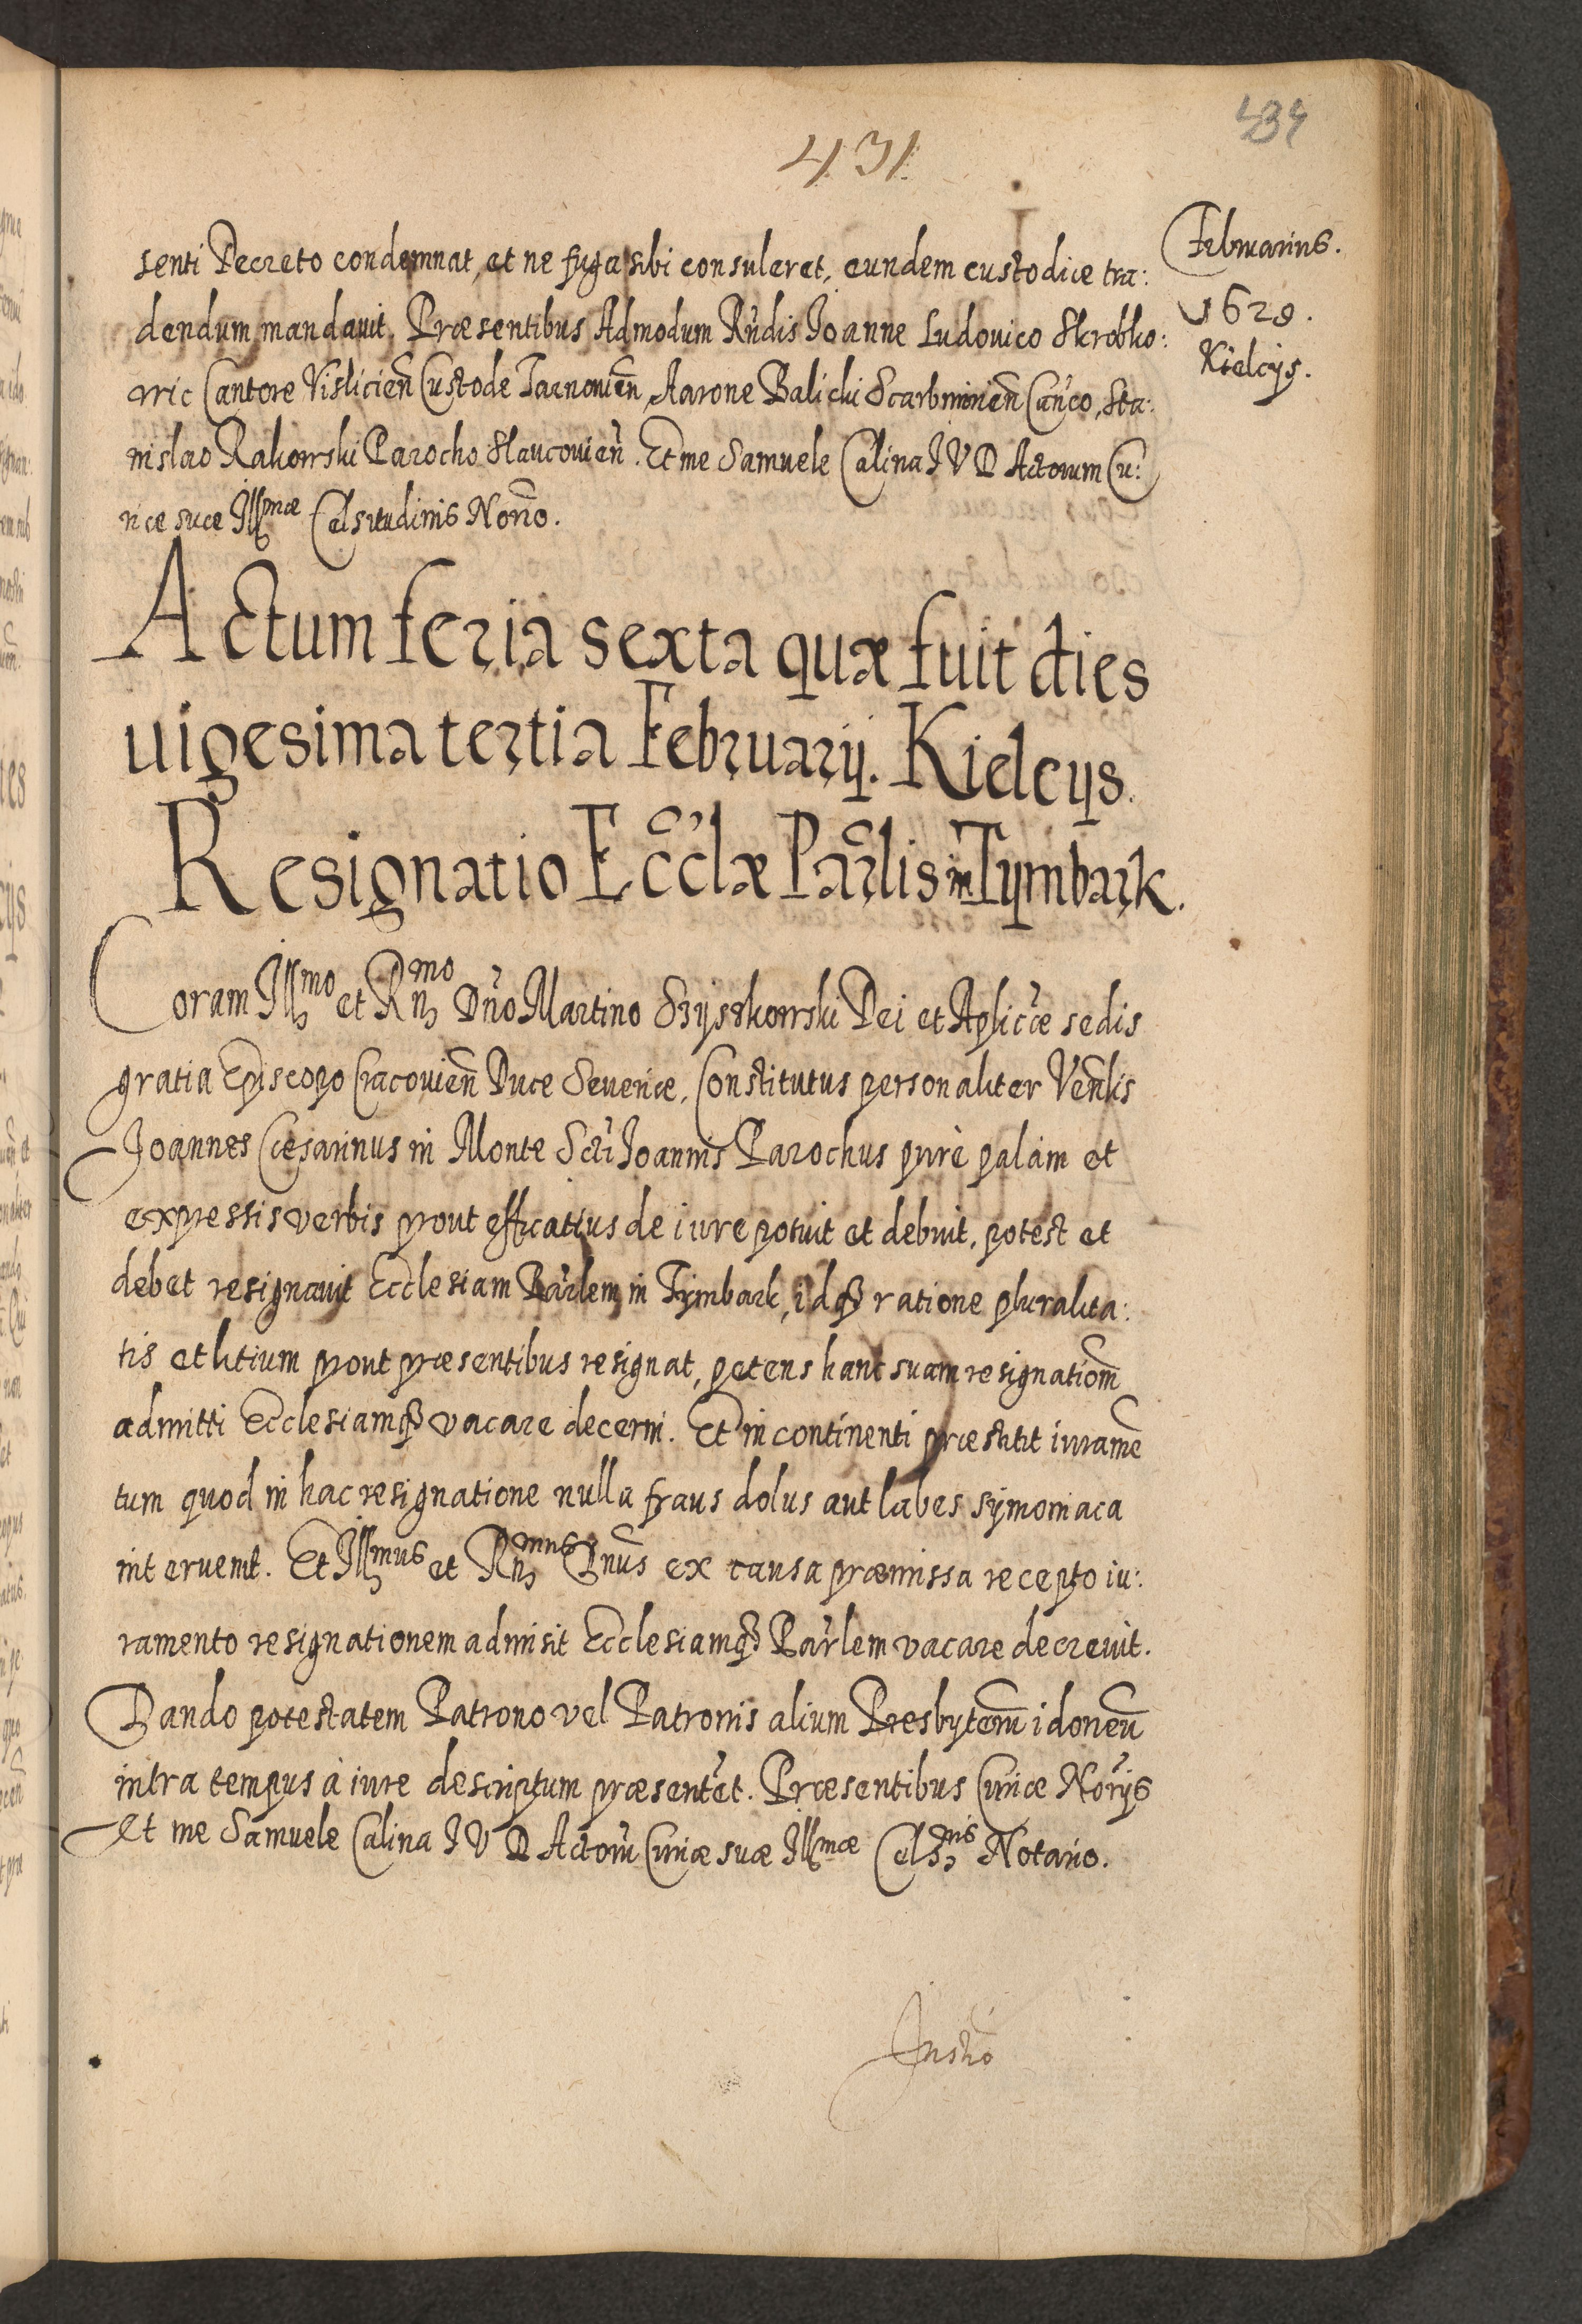 434
431
Februarius.
1629.
Kielcijs.
senti Decreto condemnat, et ne fuga sibi consuleret, eundem custodiæ tra:
dendum mandauit. Præsentibus Admodum Rñdis Joanne Ludouico Skrobko:
wic Cantore Vislicien̄ Custode Tarnouien̄, Aarone Balicki Scarbimirien̄ Cañco, Sta:
nislao Rakowski Parocho Slaucouien̄. Et me Samuele Calina I V D Actorum Cu:
riæ suæ Illmæ Celsitudinis Nor̄io.
Actum feria sexta quæ fuit dies
uigesima tertia Februarij. Kielcijs.
Resignatio Ecc̄læ Par̄lis in Tymbark.
Coram Illmo et Rnmo Dño Martino Szyszkowski Dei et Aplicæ sedis
gratia Episcopo Cracouien̄ Duce Seueriæ, Constitutus personaliter Ven̄lis
Joannes Cæsarinus in Monte Scti Joannis Parochus purè palàm et
expressis verbis prout efficatius de iure potuit et debuit, potest et
debet resignauit Ecclesiam Par̄lem in Tymbark, idq3 ratione pluralita:
tis et litium prout præsentibus resignat, petens hanc suam resignatiom̄
admitti Ecclesiamq3 vacare decerni. Et in continenti præstitit iuramē
tum quod in hac resignatione nulla fraus dolus aut labes symoniaca
interuenit. Et Illmus et Rnmus Dnus ex causa præmissa recepto iu:
ramento resignationem admisit Ecclesiamq3 Par̄lem vacare decreuit.
Dando potestatem Patrono vel Patronis alium Presbyterū idoneū
intra tempus à iure descriptum præsentet. Præsentibus Curiæ Nor̄ijs
et me Samuele Calina I V D Actorū Curiæ suæ Illmæ Celsnis Notario.